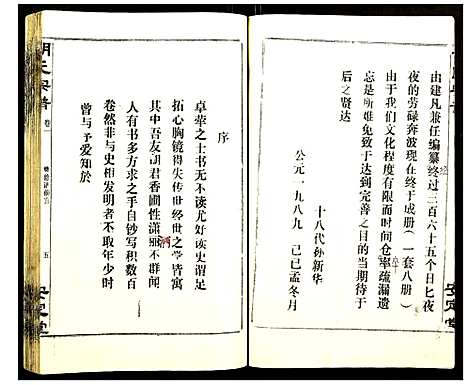 由建凡兼任编纂终过三百六十五个日匕夜
夜的劳碌奔波现在终于成册(一套八册)
由于我们文化程度有限而时间仓率疏漏遗
忘是所难免致于达到完善之目的当期待于
后之贤达
公元一九八九 己巳孟冬月
十八代孙新华
安定堂
序
卓荦之士书无不读尤好读史谓足
拓心胸镜得失传世经世之学皆寓
其中吾友胡君香圃性潇洒不群闻
人有书多方求之手自钞写积数百
卷然非与史相发明者不取年少时
曾与予爱知於
胡氏宗谱
卷一
五
安定堂